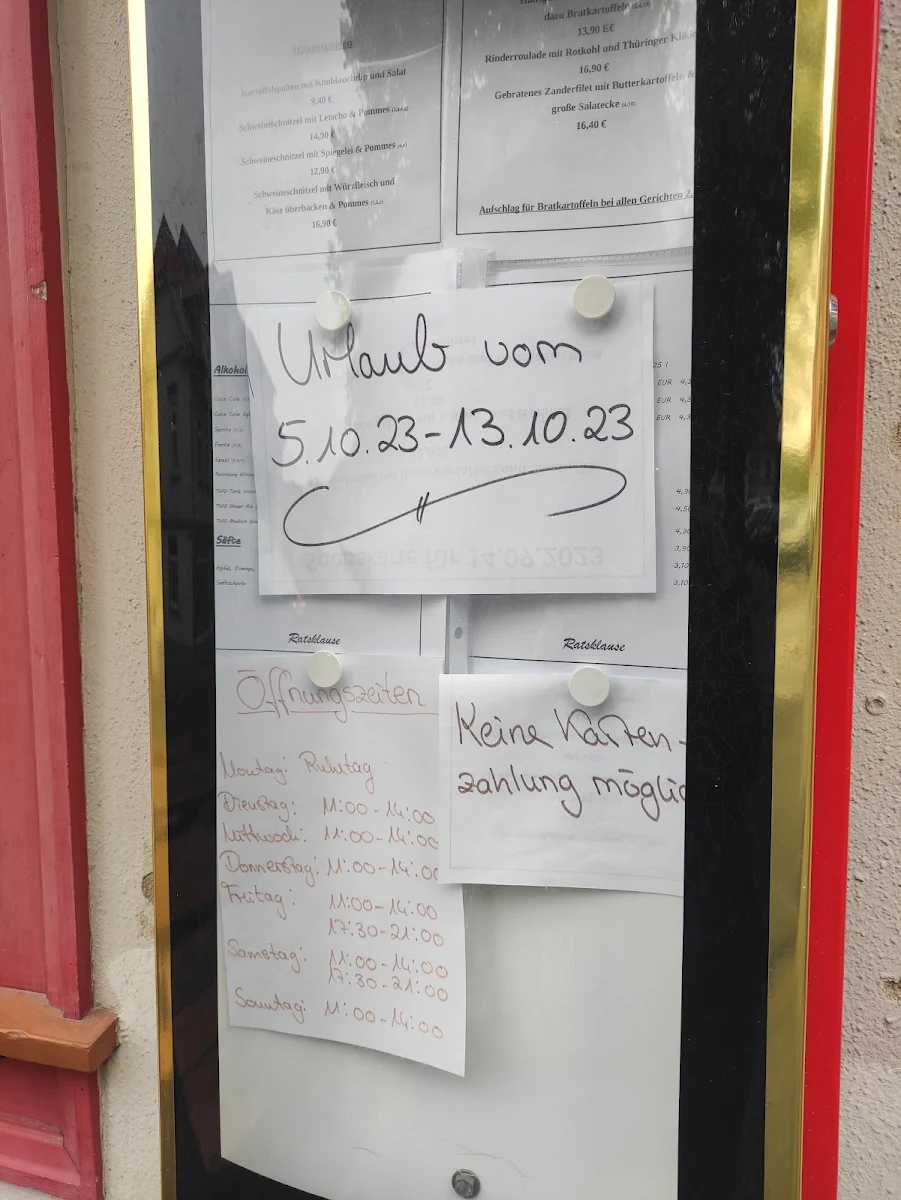 Hauptspeisen
Kartoffelspalten mit Knoblauchdip und Salat
9,40 €
Schweineschnitzel mit Letscho & Pommes
14,90 €
Schweineschnitzel mit Spiegelei & Pommes
12,90 €
Schweineschnitzel mit Würzfleisch und
Käse überbacken & Pommes
16,90 €
dazu Bratkartoffeln
13,90 E€
Rinderroulade mit Rotkohl und Thüringer
16,90 €
Gebratenes Zanderfilet mit Butterkartoffeln &
große Salatecke
16,40 €
Aufschlag für Bratkartoffeln bei allen Gerichten 2,
Urlaub vom
5.10.23-13.10.23
Speisekarte für 14.09.2023
Alkohol
Coca Cola
Coca Cola
Sprite
Fanta
Spezi
Säfte
Apfel, Orange,
Saftschorle
25 l
EUR 4,3
EUR 4,3
EUR 4,3
4,30
4,50
4,30
3,90
3,10
3,10
Ratsklause
Ratsklause
Öffnungszeiten
Montag: Ruhetag
Dienstag: 11:00-14:00
Mittwoch: 11:00-14:00
Donnerstag: 11:00-14:00
Freitag: 11:00-14:00
17:30-21:00
Samstag: 11:00-14:00
17:30-21:00
Sonntag: 11:00-14:00
Keine Karten-
zahlung möglic